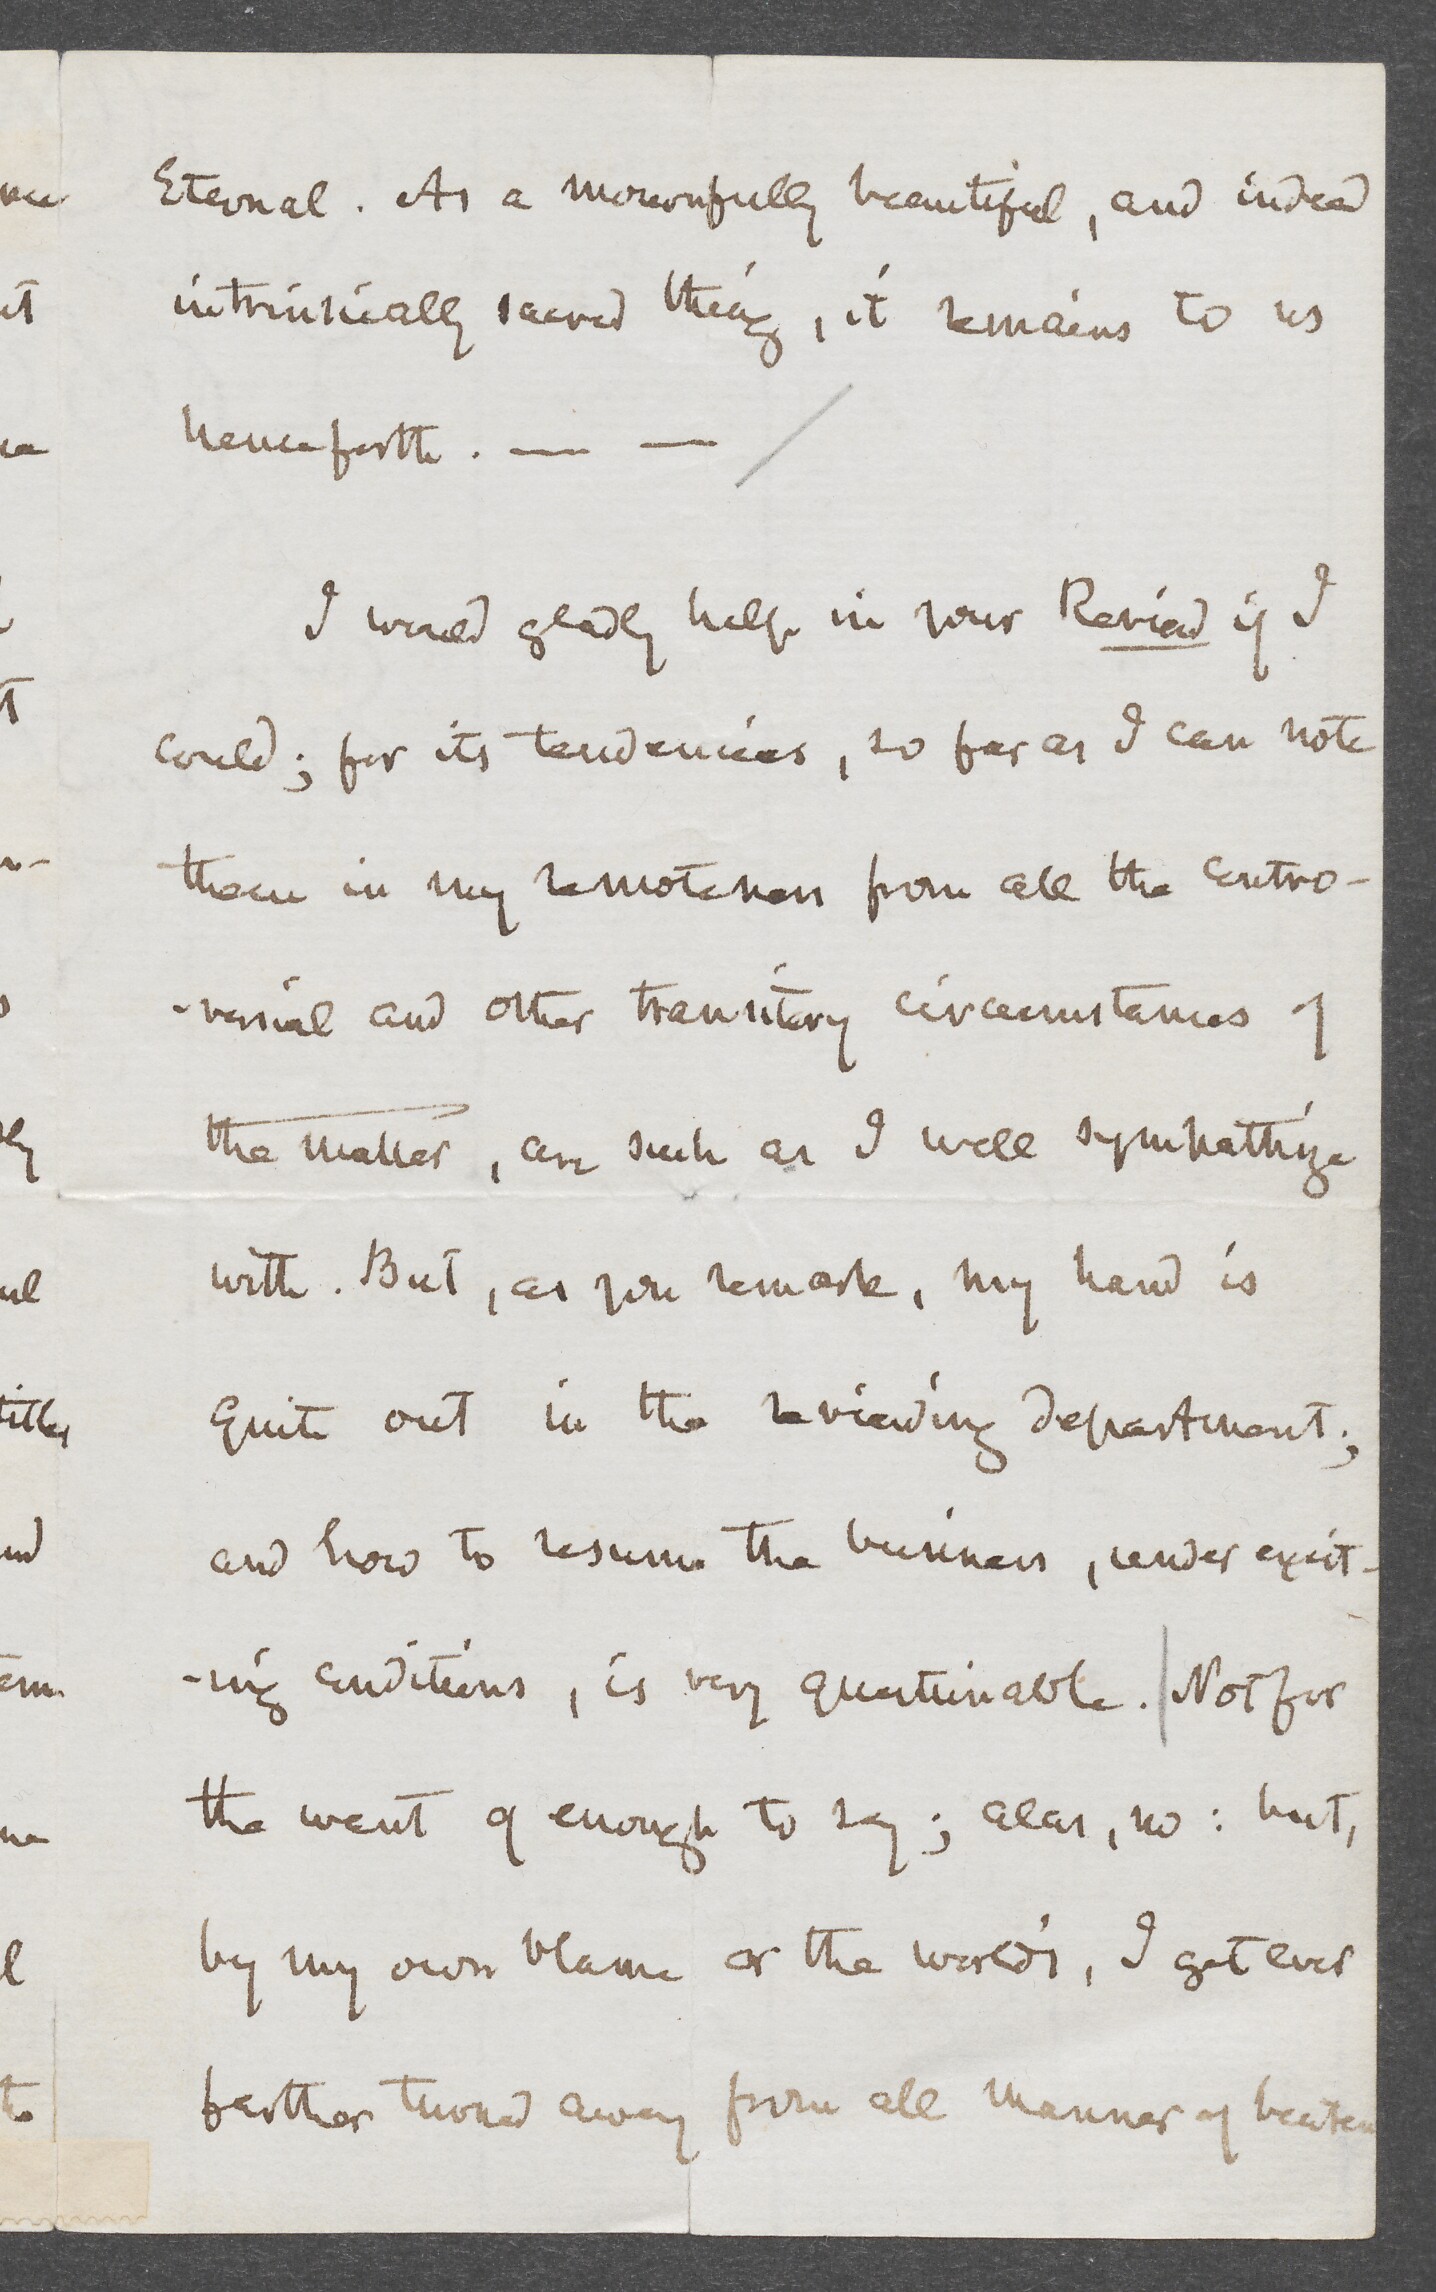 Eternal. As a mournfully beautiful, and indeed
intrinsically sacred thing, it remains to us
henceforth. — —
I would gladly help in your Review if I
could; for its tendencies, so far as I can note
them in my remoteness from all the contro-
-versial and other transitory circumstances of
the matter, are such as I well sympathize
with. But, as you remark, my hand is
quite out in the reviewing department;
and how to resume the business, under exist-
-ing conditions, is very questionable. Not for
the want of enough to say; alas, no: but,
by my own blame or the world's, I get ever
farther turned away from all manner of beaten